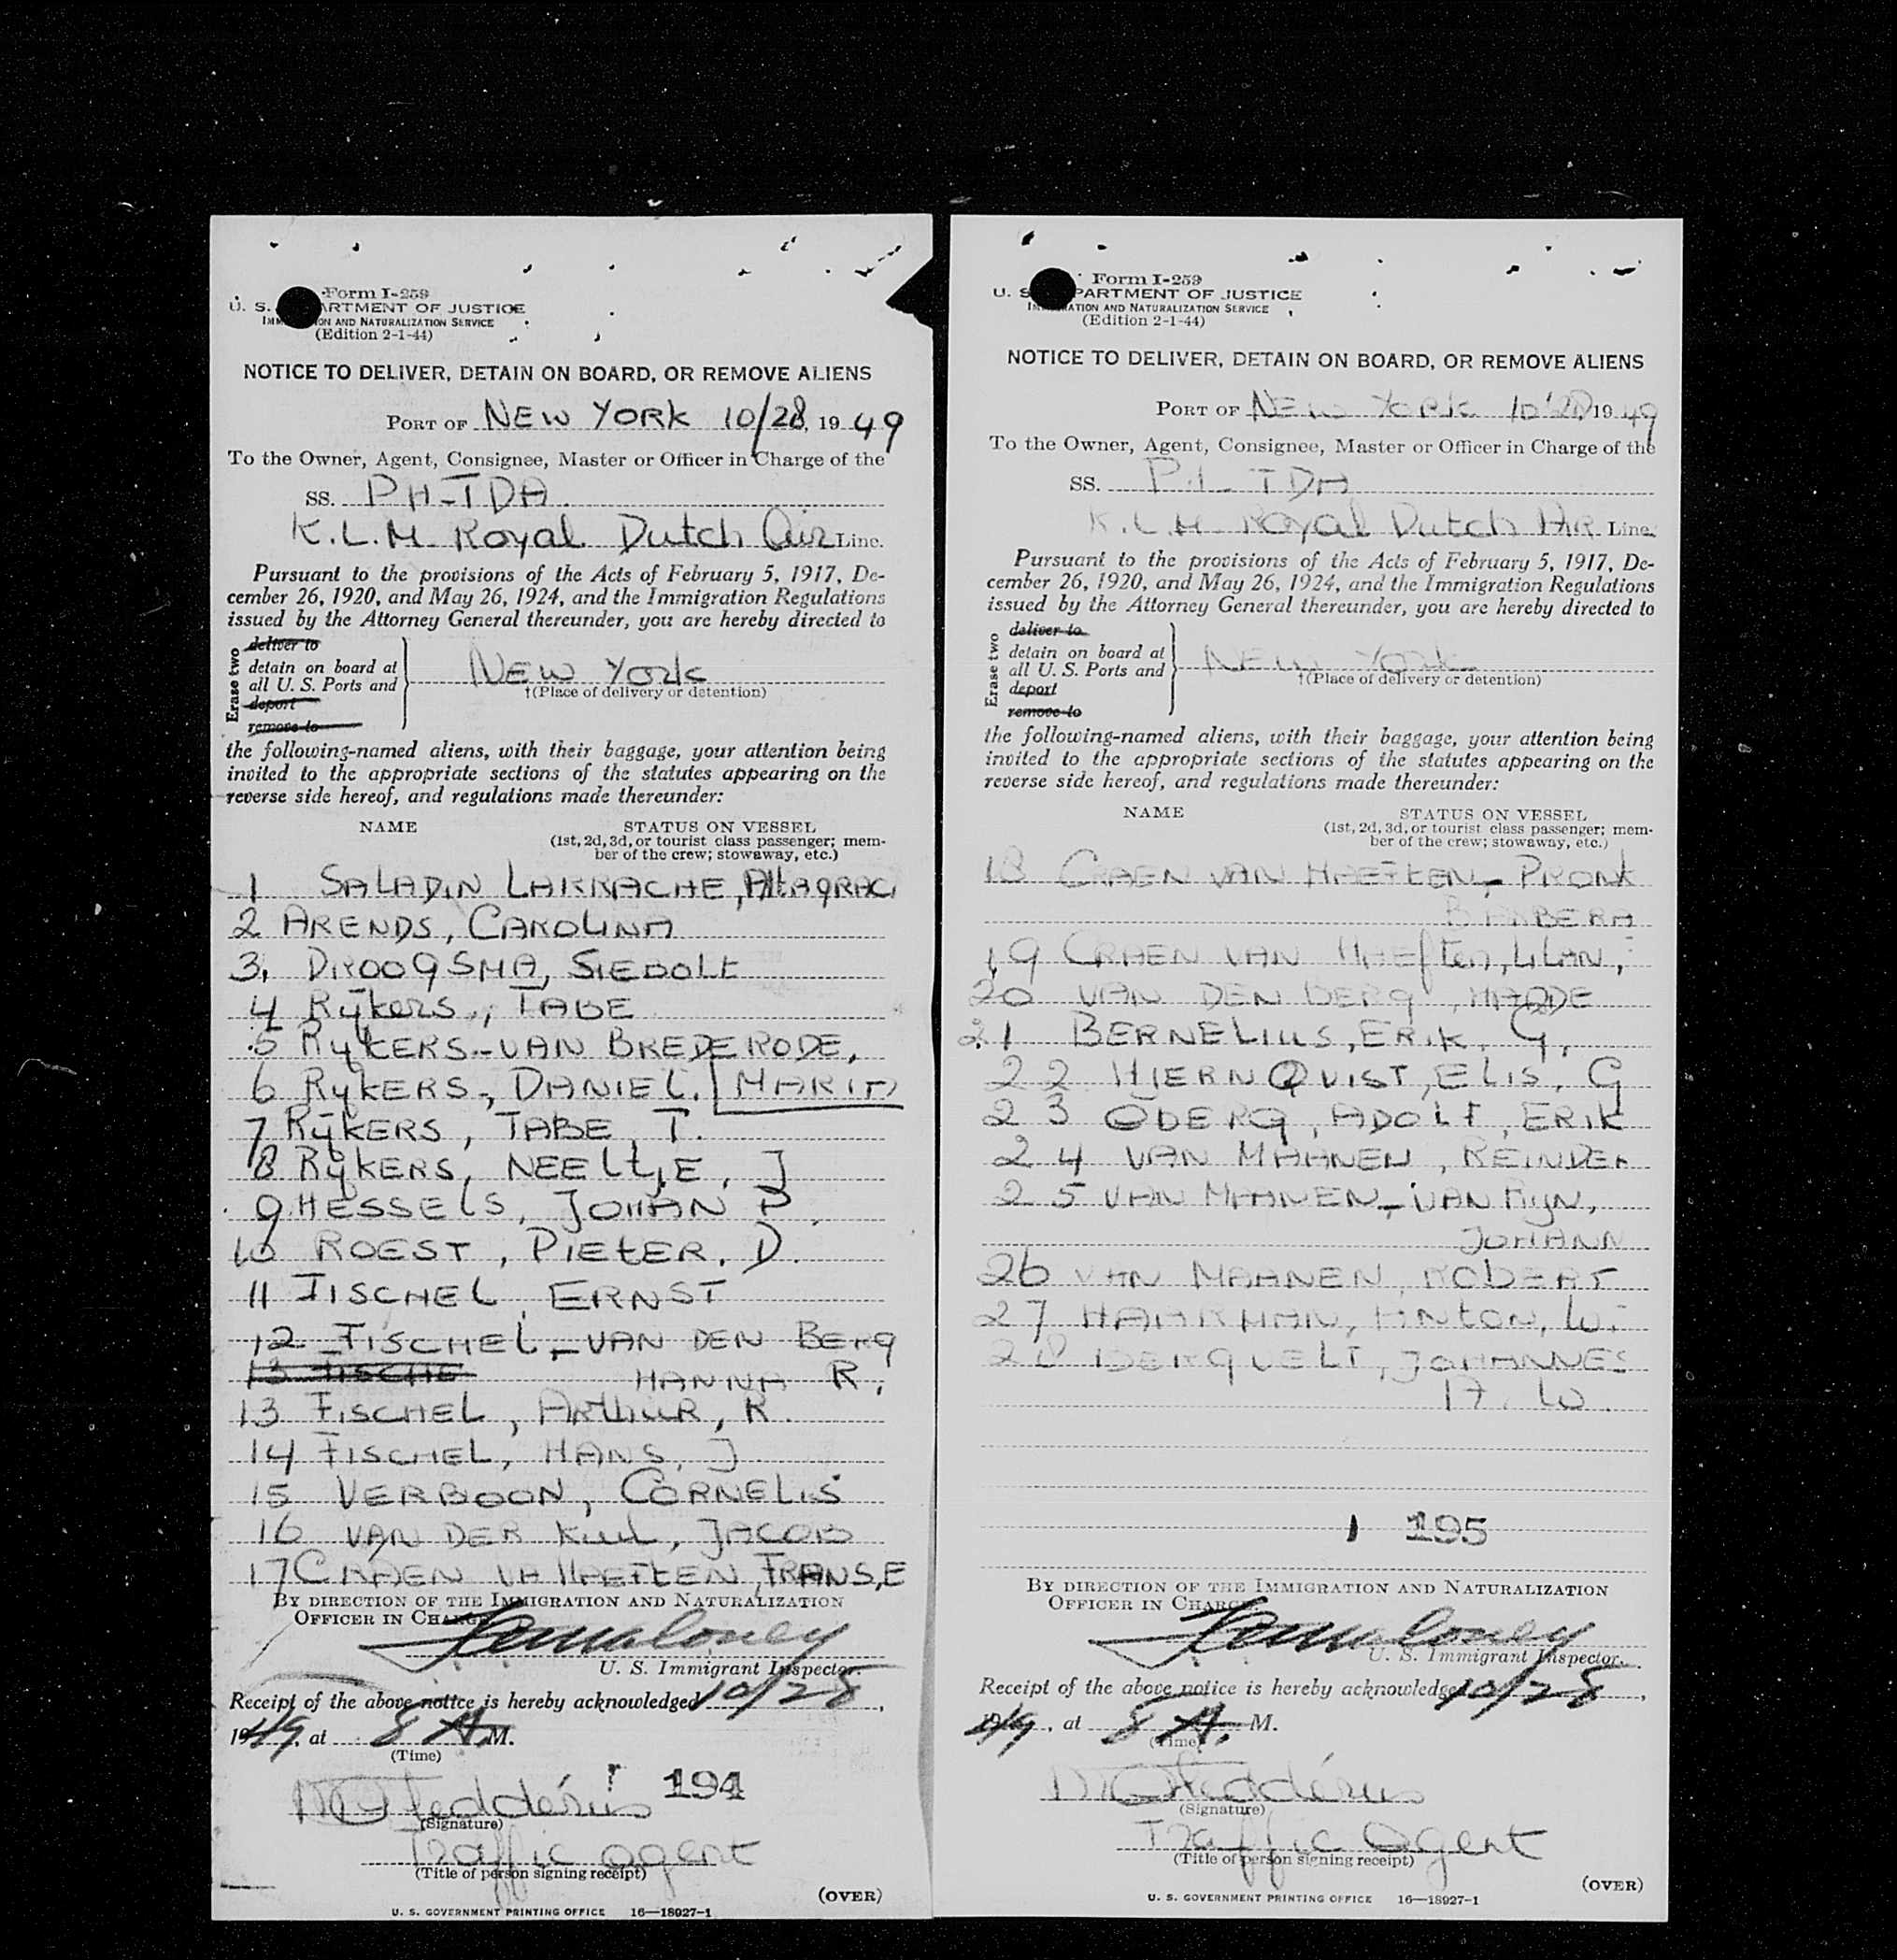 Form I-259
U. S. DEPARTMENT OF JUSTICE
IMMIGRATION AND NATURALIZATION SERVICE
(Edition 2-1-44)
NOTICE TO DELIVER, DETAIN ON BOARD, OR REMOVE ALIENS
PORT OF NEW YORK 10/28, 1949
To the Owner, Agent, Consignee, Master or Officer in Charge of the
SS. PH-TDA
K.L.M. Royal Dutch Air Line.
Pursuant to the provisions of the Acts of February 5, 1917, De-
cember 26, 1920, and May 26, 1924, and the Immigration Regulations
issued by the Attorney General thereunder, you are hereby directed to
Erase two
deliver to
detain on board at
all U. S. Ports and
deport
remove to
NEW YORK
†(Place of delivery or detention)
the following-named aliens, with their baggage, your attention being
invited to the appropriate sections of the statutes appearing on the
reverse side hereof, and regulations made thereunder:
NAME STATUS ON VESSEL
(1st, 2d, 3d, or tourist class passenger; mem-
ber of the crew; stowaway, etc.)
1 SALADIN LARRACHE, Altagraci
2 ARENDS, CAROLINA
3. DROOGSMA, SIEBOLT
4 Rijkers, TABE
5 RIJKERS-VAN BREDERODE,
6 RYKERS, DANIEL. MARIA
7 RIJKERS, TABE, T.
8 RIJKERS, NEELTJE, J
9 HESSELS, JOHAN P.
10 ROEST, PIETER, D.
11 FISCHEL, ERNST
12 FISCHEL-VAN DEN BERG
13 FISCHE HANNA R.
13 FISCHEL, ARTHUR, R.
14 FISCHEL, HANS, J
15 VERBOON, CORNELIS
16 VAN DER KUUL, JACOB
17 CRAEN VA HAEFTEN, FRANS, E
BY DIRECTION OF THE IMMIGRATION AND NATURALIZATION
OFFICER IN CHARGE.
U. S. Immigrant Inspector.
Receipt of the above notice is hereby acknowledged 10/28,
1949, at 8 A.M.
(Time)
194
(Signature)
Traffic agent
(Title of person signing receipt)
(OVER)
U. S. GOVERNMENT PRINTING OFFICE 16—18927-1
Form I-259
U. S. DEPARTMENT OF JUSTICE
IMMIGRATION AND NATURALIZATION SERVICE
(Edition 2-1-44)
NOTICE TO DELIVER, DETAIN ON BOARD, OR REMOVE ALIENS
PORT OF NEW YORK 10/28, 1949
To the Owner, Agent, Consignee, Master or Officer in Charge of the
SS. PH-TDA
K.L.M. Royal Dutch AIR Line.
Pursuant to the provisions of the Acts of February 5, 1917, De-
cember 26, 1920, and May 26, 1924, and the Immigration Regulations
issued by the Attorney General thereunder, you are hereby directed to
Erase two
deliver to
detain on board at
all U. S. Ports and
deport
remove to
NEW YORK
†(Place of delivery or detention)
the following-named aliens, with their baggage, your attention being
invited to the appropriate sections of the statutes appearing on the
reverse side hereof, and regulations made thereunder:
NAME STATUS ON VESSEL
(1st, 2d, 3d, or tourist class passenger; mem-
ber of the crew; stowaway, etc.)
18 CRAEN VAN HAEFTEN - PRONK
BARBERA
19 CRAEN VAN HAEFTEN, LILAN,
20 VAN DEN BERG,
21 BERNELIUS, ERIK, G.
22 HJERNQUIST, ELIS, G
23 OBERG, ADOLF, ERIK
24 VAN MAANEN, REINDER
25 VAN MAANEN - VAN RIJN,
JOHANN
26 VAN MAANEN, ROBERT
27 HAARMAN, ANTON, W.
28 BERGVELT, JOHANNES
17. W.
195
BY DIRECTION OF THE IMMIGRATION AND NATURALIZATION
OFFICER IN CHARGE.
U. S. Immigrant Inspector.
Receipt of the above notice is hereby acknowledged 10/28,
1949, at 8 A. M.
(Time)
(Signature)
Traffic Agent
(Title of person signing receipt)
(OVER)
U. S. GOVERNMENT PRINTING OFFICE 16—18927-1